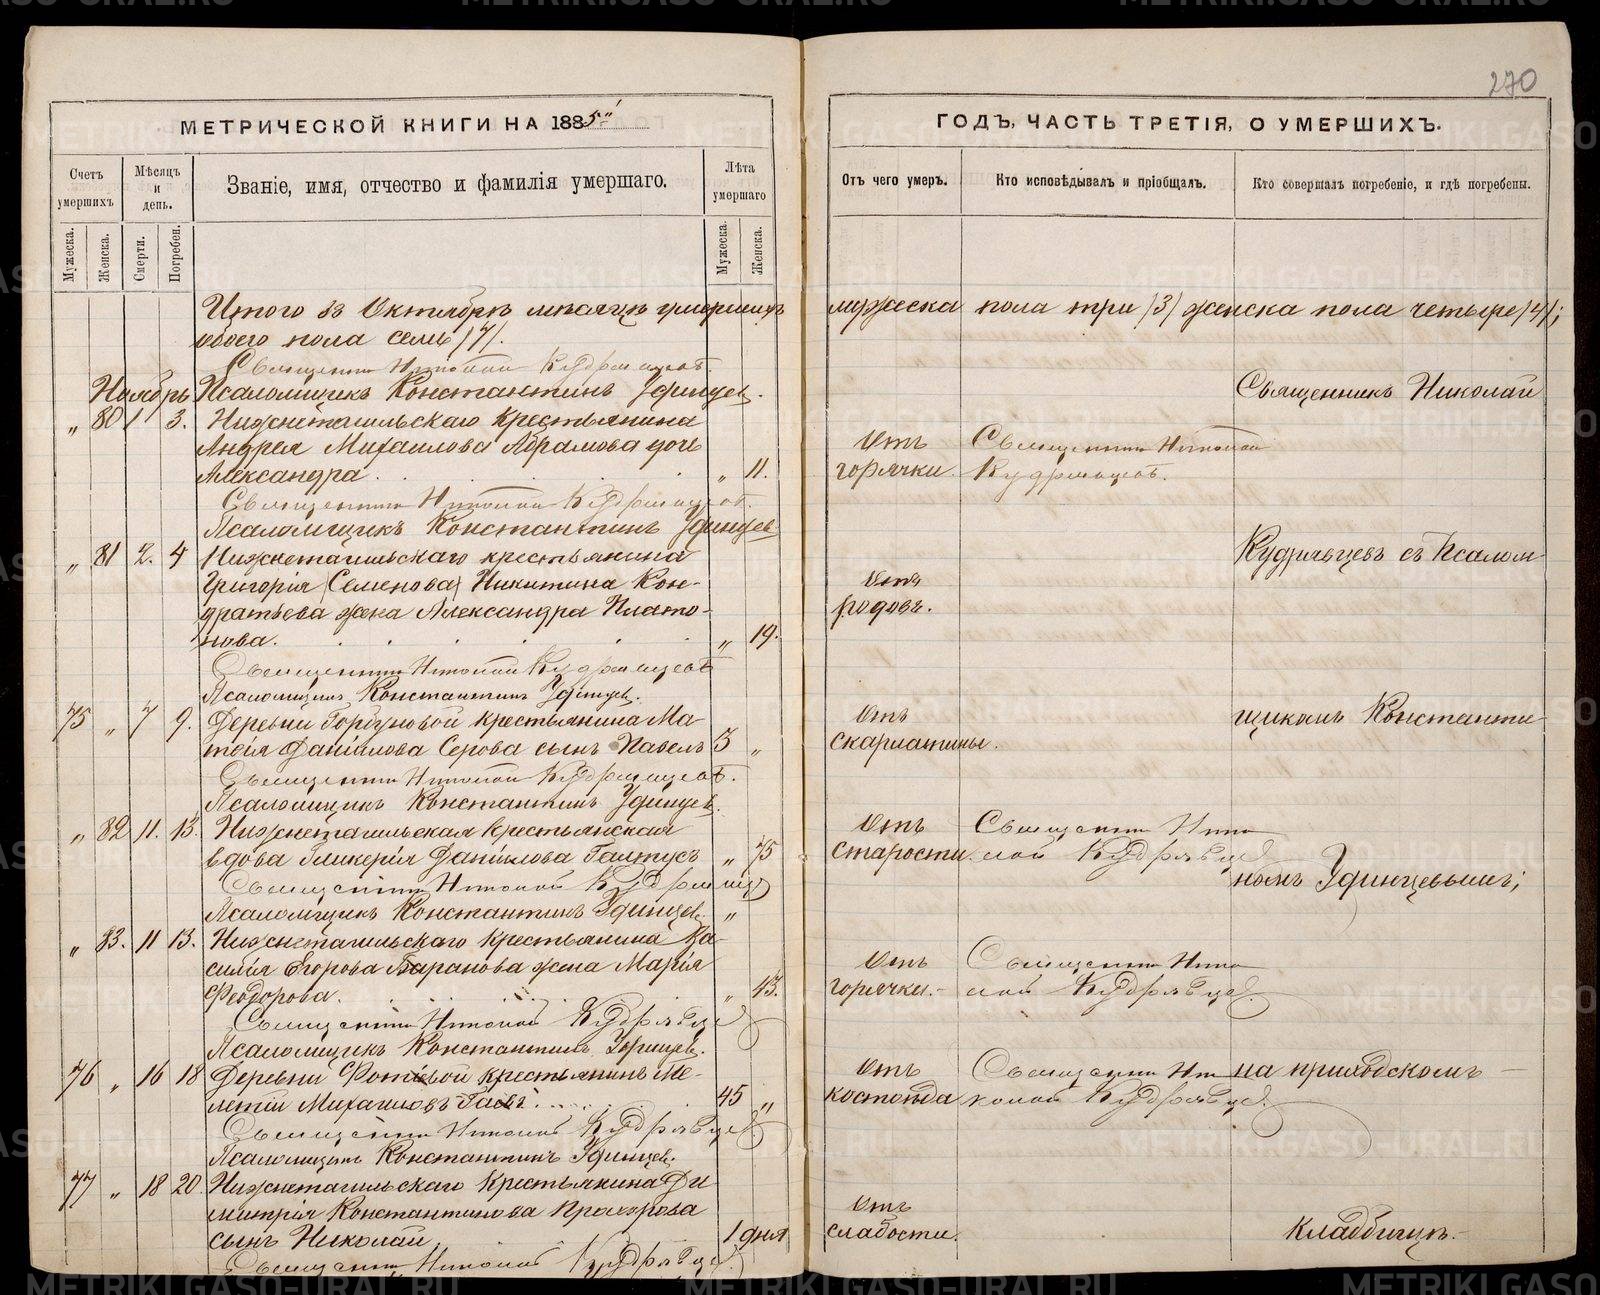 270
МЕТРИЧЕСКОЙ КНИГИ НА 1885й
Счетъ умершихъ
Мѣсяцъ и день.
Званіе, имя, отчество и фамилія умершаго.
Лѣта умершаго
Мужеска.
Женска.
Смерти.
Погребен.
Мужеска.
Женска.
Итого въ Октябрѣ мѣсяцѣ умершихъ
обоего пола семь /7/.
Священникъ Николай Кудрявцевъ.
Ноябрь Псаломщикъ Константинъ Удинцев.
„ 80 1 3. Нижнетагильскаго крестьянина
Андрея Михаилова Абрамова дочь
Александра. „ 11.
Священникъ Николай Кудрявцевъ.
Псаломщикъ Константинъ Удинцев
„ 81 2. 4 Нижнетагильскаго крестьянина
Григорія (Семенова) Никитина Кон-
дратьева жена Александра Плато-
нова. „ 19.
Священникъ Николай Кудрявцевъ
Псаломщикъ Константинъ Удинцев.
75 „ 7 9. Деревни Горбуновой крестьянина Ма-
твія Даніилова Серова сынъ Павелъ 3 „
Священникъ Николай Кудрявцевъ.
Псаломщикъ Константинъ Удинцев.
„ 82 11. 13. Нижнетагильская крестьянская
вдова Гликерія Даніилова Галтусъ „ 75
Священникъ Николай Кудрявцев
Псаломщикъ Константинъ Удинцев. „
„ 83. 11 13. Нижнетагильскаго крестьянина Ва-
силія Егорова Баранова жена Марія
Феодорова. „ 43.
Священникъ Николай Кудрявцев
Псаломщикъ Константинъ Удинцев.
76 „ 16 18 Деревни Фотѣевой крестьянинъ Ме-
летій Михаиловъ 45 „
Священникъ Николай Кудрявцев
Псаломщикъ Константинъ Удинцев.
77 „ 18 20 Нижнетагильскаго крестьянина Ди
митрія Константинова Прохорова
сынъ Николай 1 дня
Священникъ Николай Кудрявцев
ГОДЪ, ЧАСТЬ ТРЕТІЯ, О УМЕРШИХЪ.
Отъ чего умеръ.
Кто исповѣдывалъ и пріобщалъ.
Кто совершалъ погребеніе, и гдѣ погребены.
мужеска пола три /3/ женска пола четыре /4/;
Священникъ Николай
Отъ Священникъ Николай
горячки. Кудрявцевъ.
Кудрявцевъ съ Псалом
Отъ
родовъ.
Отъ щикомъ Константи
скарлатины.
Отъ Священникъ Нико
старости. лай Кудрявцев
номъ Удинцевымъ;
Отъ Священникъ Нико
горячки. лай Кудрявцев.
Отъ Священникъ Ни на приходскомъ
костоѣда колай Кудрявцев.
Отъ
слабости. кладбищѣ.
METRIKI.GASO-URAL.RU